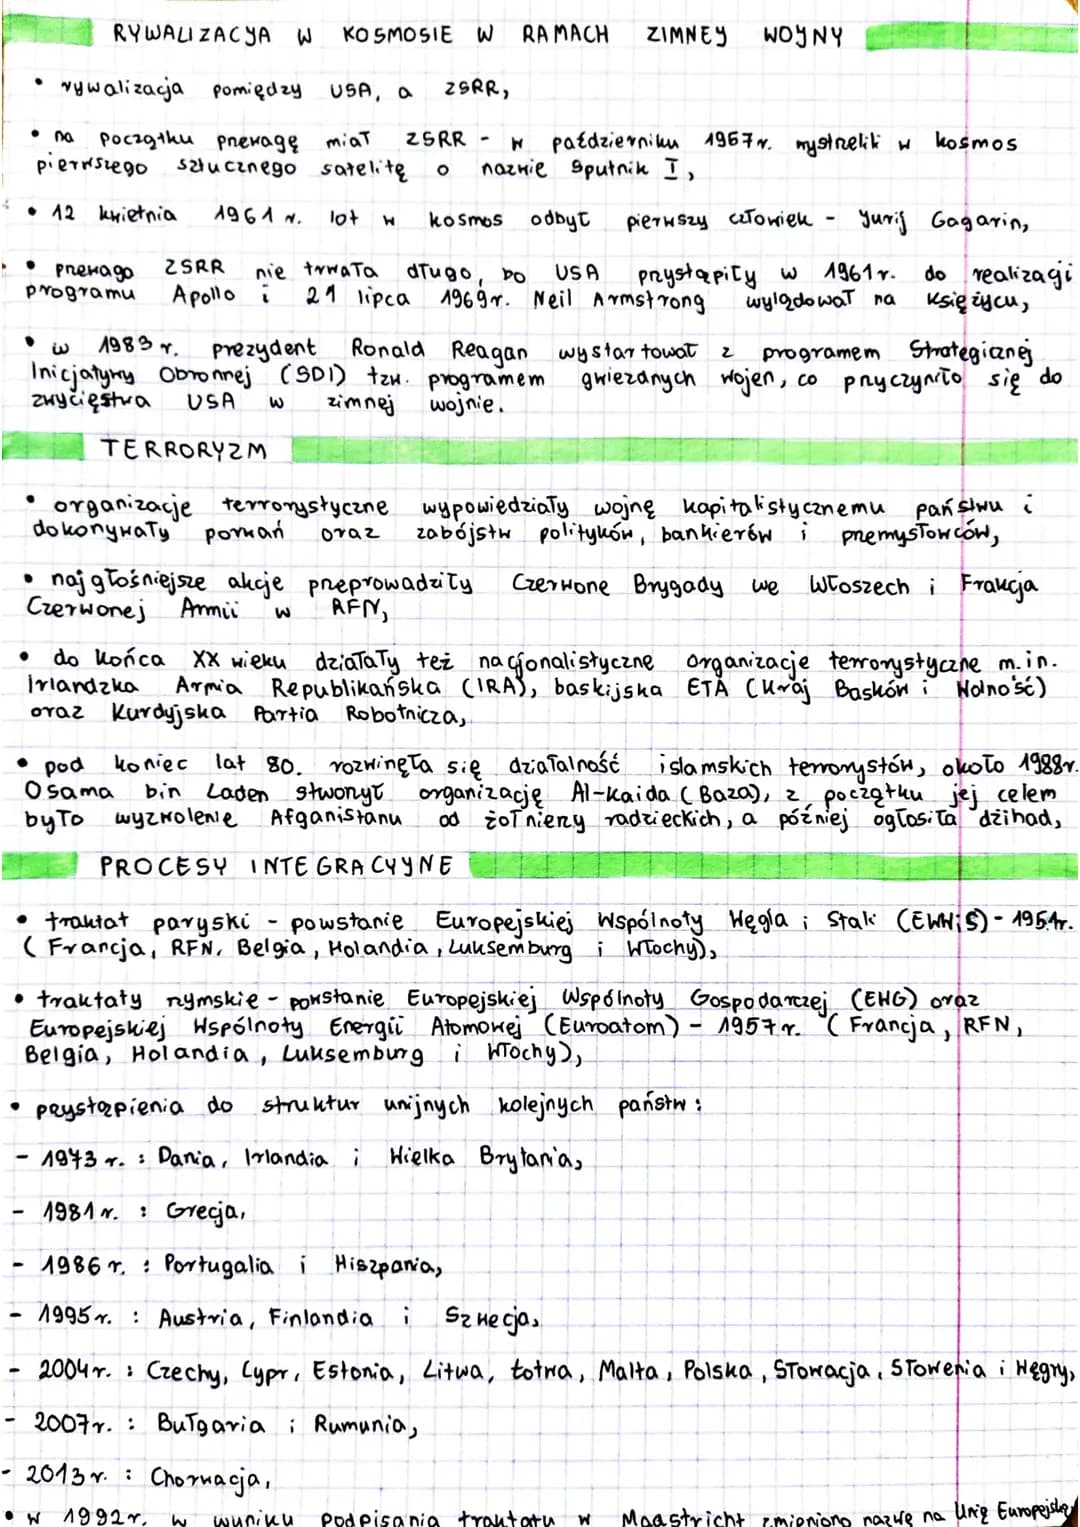 RYWALIZACJA W KOSMOSIE W RAMACH ZIMNEJ WOJNY
• rywalizacja pomiędzy USA, a ZSRR,
• na początku przewagę miał ZSRR - w październiku 1957r. wystrzelili w kosmos
pierwszego sztucznego satelitę o nazwie Sputnik I,
• 12 kwietnia 1961 r. lot w kosmos odbył pierwszy człowiek - Jurij Gagarin,
• przewaga ZSRR nie trwała długo, bo USA przystąpiły w 1961r. do realizacji
programu Apollo i 21 lipca 1969r. Neil Armstrong wylądował na księżycu,
• w 1983 r. prezydent Ronald Reagan wystartował z programem Strategicznej
Inicjatywy Obronnej (SDI) tzw. programem gwiezdnych wojen, co przyczyniło się do
zwycięstwa USA w zimnej wojnie.
TERRORYZM
• organizacje terrorystyczne wypowiedziały wojnę kapitalistycznemu państwu i
dokonywały porwań oraz zabójstw polityków, bankierów i przemysłowców,
• najgłośniejsze akcje przeprowadziły Czerwone Brygady we Włoszech i Frakcja
Czerwonej Armii w RFN,
• do końca XX wieku działały też nacjonalistyczne organizacje terrorystyczne m.in.
Irlandzka Armia Republikańska (IRA), baskijska ETA (Kraj Basków i Wolność)
oraz Kurdyjska Partia Robotnicza,
• pod koniec lat 80. rozwinęła się działalność islamskich terrorystów, około 1988r.
Osama bin Laden stworzył organizację Al-Kaida (Baza), z początku jej celem
było wyzwolenie Afganistanu od żołnierzy radzieckich, a później ogłosiła dżihad,
PROCESY INTEGRACYJNE
• traktat paryski - powstanie Europejskiej Wspólnoty Węgla i Stali (EWWiS) - 1951r.
(Francja, RFN, Belgia, Holandia, Luksemburg i Włochy),
• traktaty rzymskie - powstanie Europejskiej Wspólnoty Gospodarczej (EWG) oraz
Europejskiej Wspólnoty Energii Atomowej (Euroatom) - 1957r. (Francja, RFN,
Belgia, Holandia, Luksemburg i Włochy),
• przystąpienia do struktur unijnych kolejnych państw:
- 1973 r. : Dania, Irlandia i Wielka Brytania,
- 1981 r. : Grecja,
- 1986 r. : Portugalia i Hiszpania,
- 1995 r. : Austria, Finlandia i Szwecja,
- 2004r. : Czechy, Cypr, Estonia, Litwa, Łotwa, Malta, Polska, Słowacja, Słowenia i Węgry,
- 2007r. : Bułgaria i Rumunia,
- 2013 r. : Chorwacja,
• w 1992r. w wyniku podpisania traktatu w Maastricht zmieniono nazwę na Unię Europejską